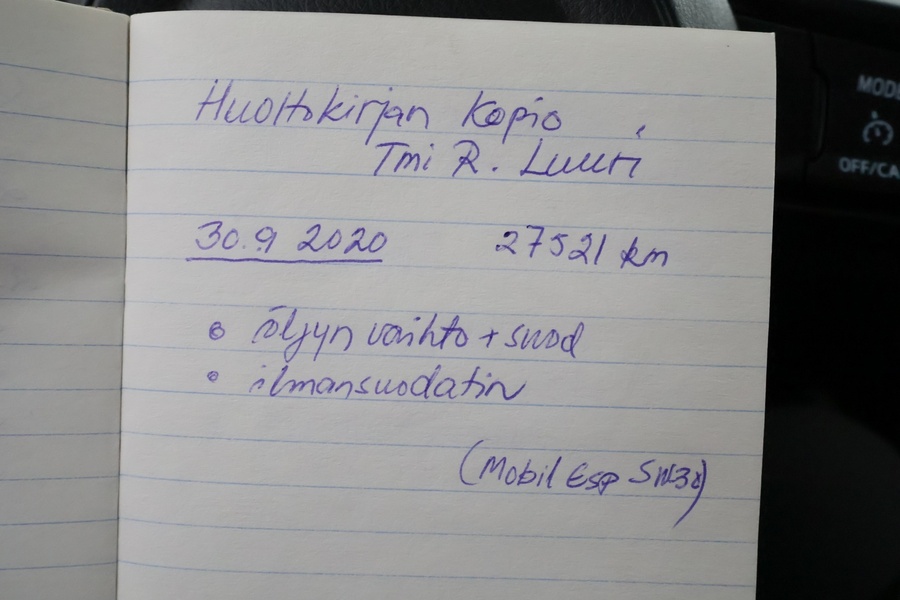 Huoltokirjan Kopio
Tmi R. Luuri
30.9 2020 27521 km
• öljyn vaihto + suod
• ilmansuodatin
(Mobil Esp 5W30)
MODE
OFF/CA